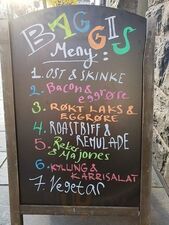 BAGGIS
Meny:
1. OST & SKINKE
2. Bacon & eggrøre
3. RØKT LAKS & EGGRØRE
4. ROASTBIFF & REMULADE
5. Reker & Majones
6. KYLLING & KARRISALAT
7. Vegetar